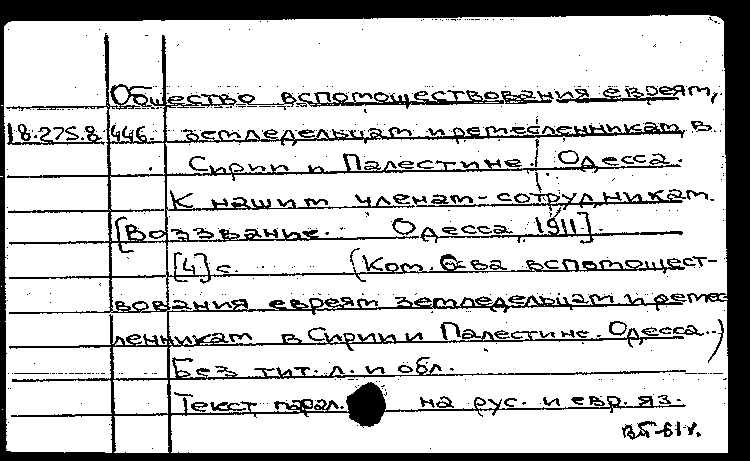 Общество вспомоществования евреям,
18.275.8 446. земледельцам и ремесленникам в
Сирии и Палестине. Одесса.
К нашим членам-сотрудникам.
[Воззвание. Одесса, 1911].
[4] с. (Ком. О-ва вспомощест-
вования евреям земледельцам и реме-
ленникам в Сирии и Палестине. Одесса.)
Без тит. л. и обл.
Текст парал. на рус. и евр. яз.